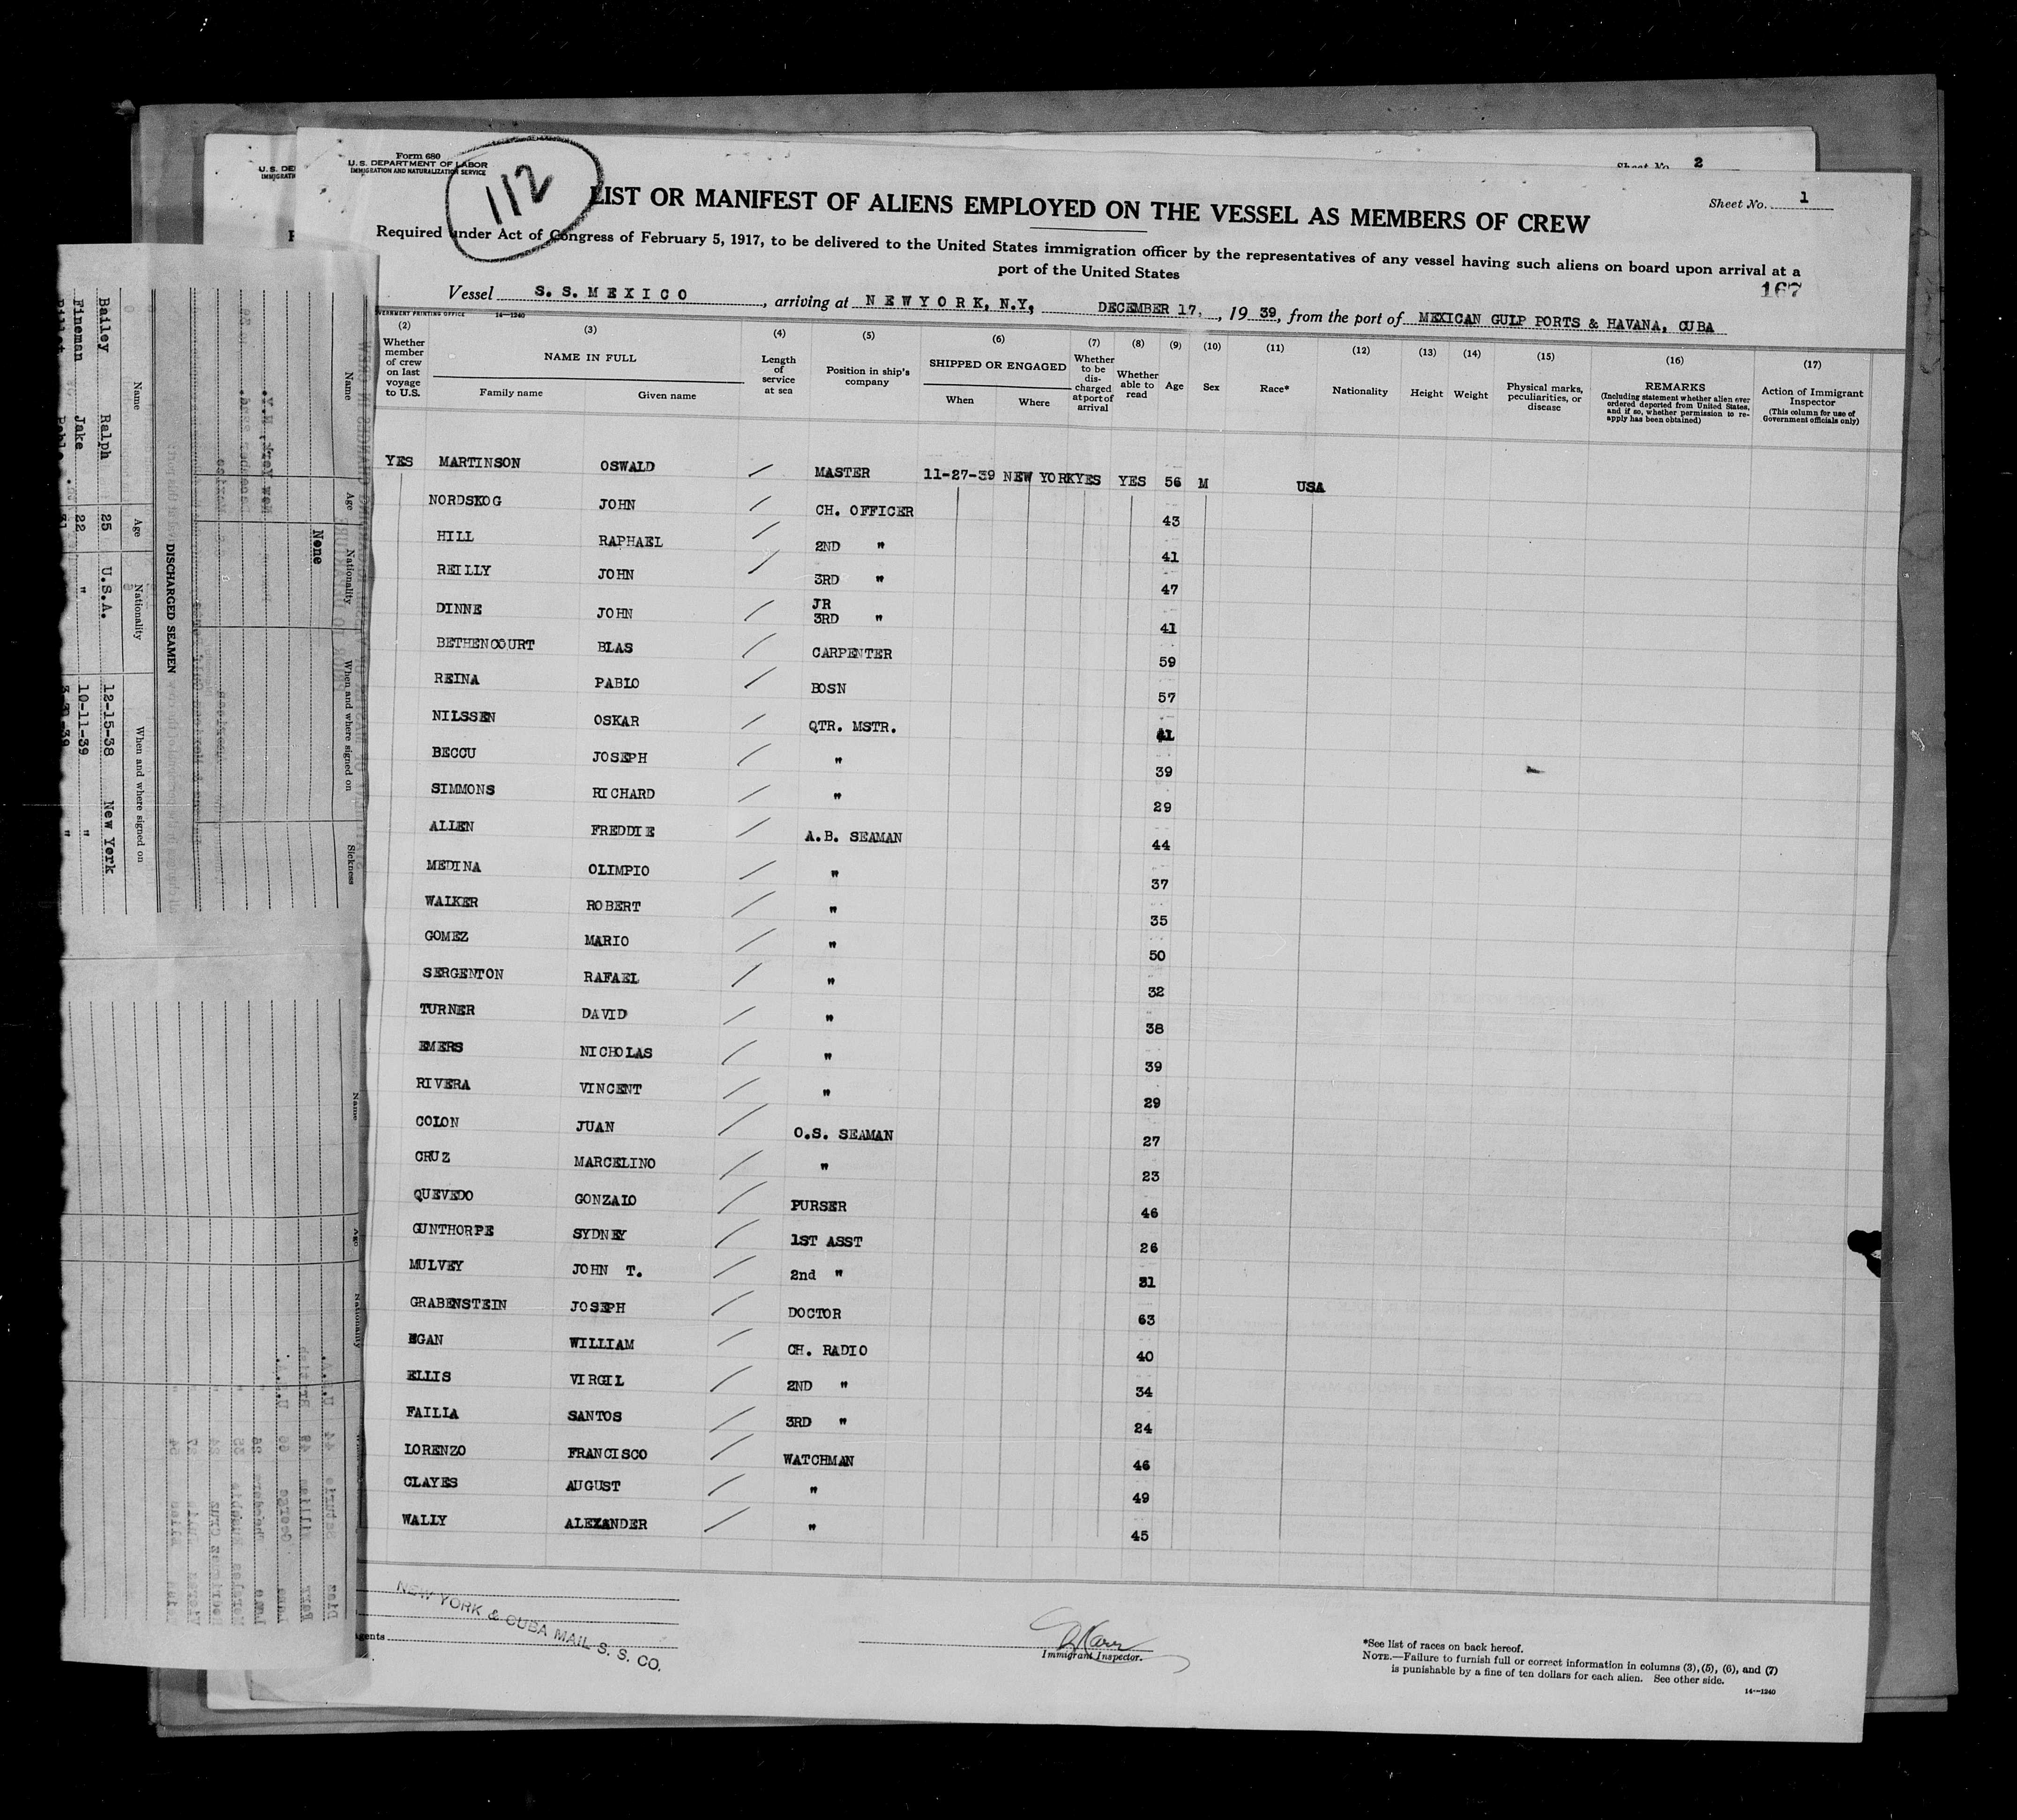 Form 680
U. S. DEPARTMENT OF LABOR
IMMIGRATION AND NATURALIZATION SERVICE
112
Sheet No. 2
Sheet No. 1
LIST OR MANIFEST OF ALIENS EMPLOYED ON THE VESSEL AS MEMBERS OF CREW
Required under Act of Congress of February 5, 1917, to be delivered to the United States immigration officer by the representatives of any vessel having such aliens on board upon arrival at a
port of the United States
167
Vessel S. S. MEXICO, arriving at NEW YORK, N.Y, DECEMBER 17, , 19 39, from the port of MEXICAN GULP PORTS & HAVANA, CUBA
VERNMENT PRINTING OFFICE 14—1240
(2) Whether member of crew on last voyage to U.S.
(3) NAME IN FULL
Family name Given name
(4) Length of service at sea
(5) Position in ship's company
(6) SHIPPED OR ENGAGED
When Where
(7) Whether to be discharged at port of arrival
(8) Whether able to read
(9) Age
(10) Sex
(11) Race*
(12) Nationality
(13) Height
(14) Weight
(15) Physical marks, peculiarities, or disease
(16) REMARKS (Including statement whether alien ever ordered deported from United States, and if so, whether permission to reapply has been obtained)
(17) Action of Immigrant Inspector (This column for use of Government officials only)
YES MARTINSON OSWALD / MASTER 11-27-39 NEW YORK YES YES 56 M USA
NORDSKOG JOHN / CH. OFFICER 43
HILL RAPHAEL / 2ND " 41
REILLY JOHN / 3RD " 47
DINNE JOHN / JR 3RD " 41
BETHENCOURT BLAS / CARPENTER 59
REINA PABLO / BOSN 57
NILSSEN OSKAR / QTR. MSTR. 41
BECCU JOSEPH / " 39
SIMMONS RICHARD / " 29
ALLEN FREDDIE / A.B. SEAMAN 44
MEDINA OLIMPIO / " 37
WALKER ROBERT / " 35
GOMEZ MARIO / " 50
SERGENTON RAFAEL / " 32
TURNER DAVID / " 38
EMERS NICHOLAS / " 39
RIVERA VINCENT / " 29
COLON JUAN / O.S. SEAMAN 27
CRUZ MARCELINO / " 23
QUEVEDO GONZALO / PURSER 46
GUNTHORPE SYDNEY / 1ST ASST 26
MULVEY JOHN T. / 2nd " 31
GRABENSTEIN JOSEPH / DOCTOR 63
EGAN WILLIAM / CH. RADIO 40
ELLIS VIRGIL / 2ND " 34
FAILLA SANTOS / 3RD " 24
LORENZO FRANCISCO / WATCHMAN 46
CLAYES AUGUST / " 49
WALLY ALEXANDER / " 45
NEW YORK & CUBA MAIL S. S. CO.
Agents
Immigrant Inspector.
*See list of races on back hereof.
NOTE.—Failure to furnish full or correct information in columns (3), (5), (6), and (7)
is punishable by a fine of ten dollars for each alien. See other side.
14—1240
Name Age Nationality When and where signed on Sickness
None
DISCHARGED SEAMEN
Name Age Nationality When and where signed on
Bailey Ralph 25 U.S.A. 12-15-38 New York
Fineman Jake 22 " 10-11-39 "